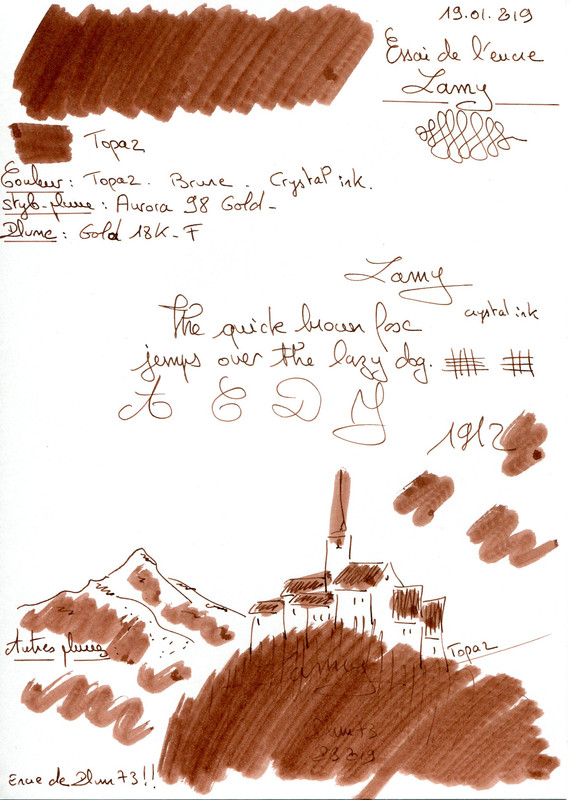 19.01.2019
Essai de l'encre
Lamy
Topaz
Couleur : Topaz. Brune. Crystal ink.
Stylo-plume : Aurora 98 Gold-
Plume : Gold 18K-F
Lamy
crystal ink
The quick brown fox
jemps over the lazy dog.
A C D Y
1912
Autres plumes
Topaz
Lamy
Plum 73
Encre de Plum73!!